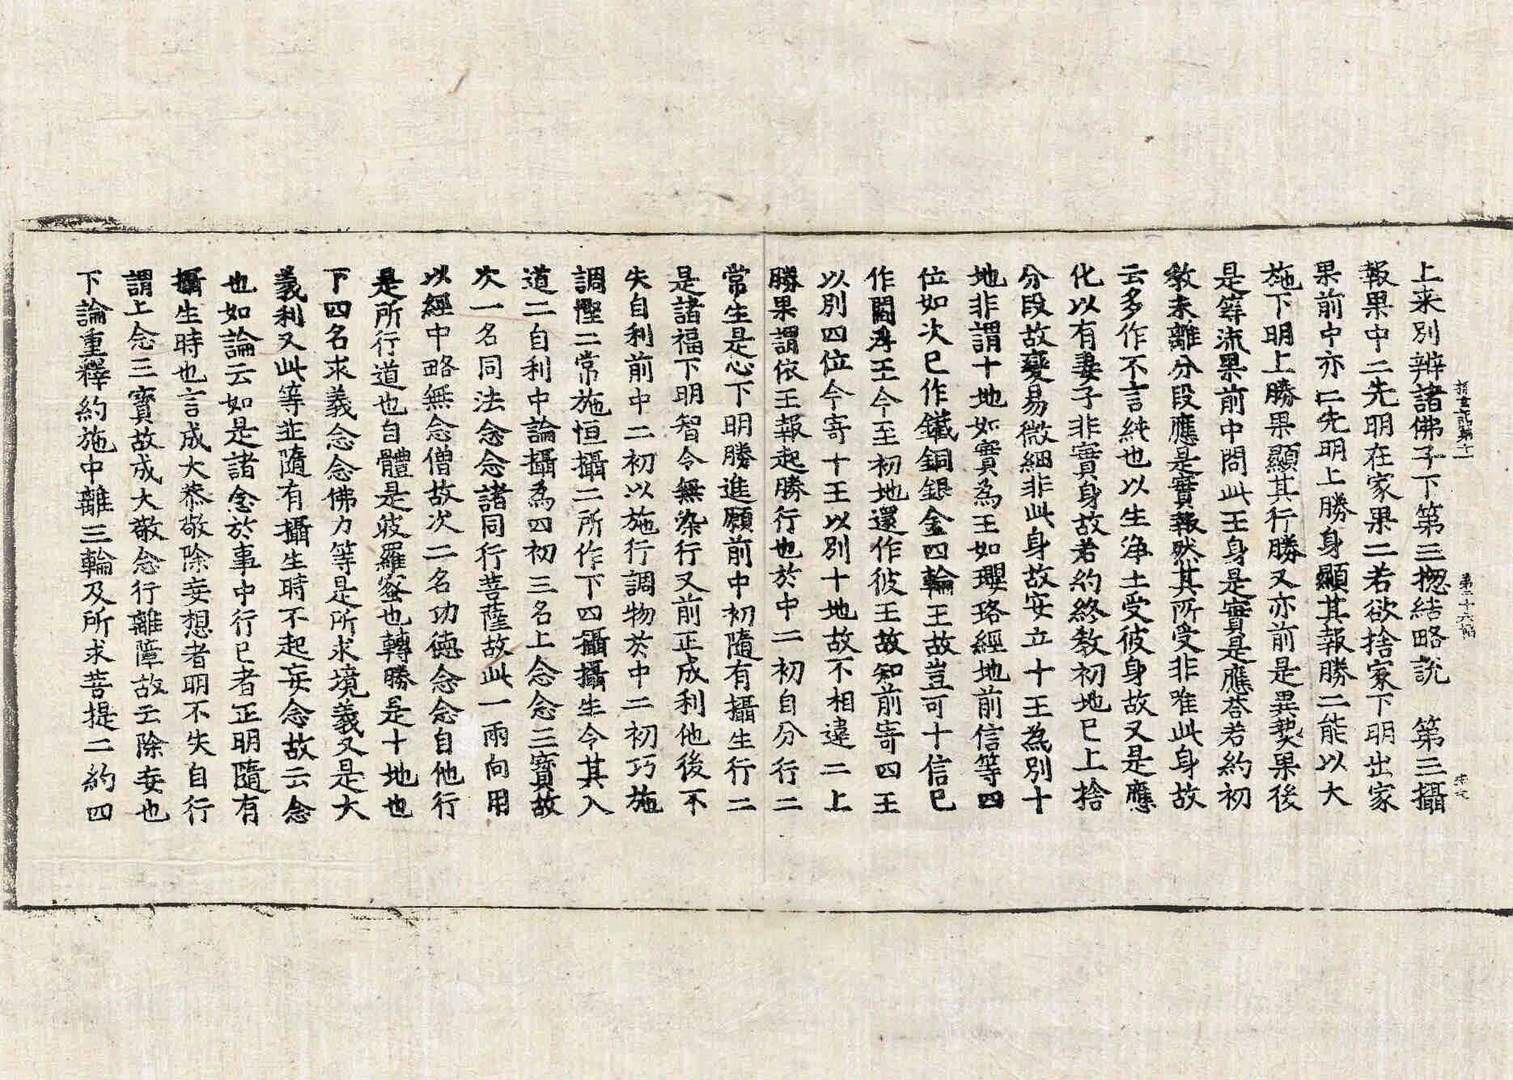 探玄記第十一 第二十六幅
上来別辨諸佛子下第三揔結略說　第三攝
報果中二先明在家果二若欲捨家下明出家
果前中亦二先明上勝身顯其報勝二能以大
施下明上勝果顯其行勝又亦前是異熟果後
是等流果前中問此王身是實是應荅若約初
教未離分段應是實報然其所受非唯此身故
云多作不言純也以生淨土受彼身故又是應
化以有妻子非實身故若約終教初地已上捨
分段故變易微細非此身故安立十王為別十
地非謂十地如實為王如瓔珞經地前信等四
位如次已作鐵銅銀金四輪王故豈可十信已
作閻浮王今至初地還作彼王故知前寄四王
以別四位今寄十王以別十地故不相違二上
勝果謂依王報起勝行也於中二初自分行二
常生是心下明勝進願前中初隨有攝生行二
是諸福下明智令無染行又前正成利他後不
失自利前中二初以施行調物於中二初巧施
調慳二常施恒攝二所作下四攝攝生令其入
道二自利中論攝為四初三名上念念三寶故
次一名同法念念諸同行菩薩故此一兩向用
以經中略無念僧故次二名功德念念自他行
是所行道也自體是波羅蜜也轉勝是十地也
下四名求義念念佛力等是所求境義又是大
義利又此等並隨有攝生時不起妄念故云念
也如論云如是諸念於事中行已者正明隨有
攝生時也言成大恭敬除妄想者明不失自行
謂上念三寶故成大敬念行離障故云除妄也
下論重釋約施中離三輪及所求菩提二約四